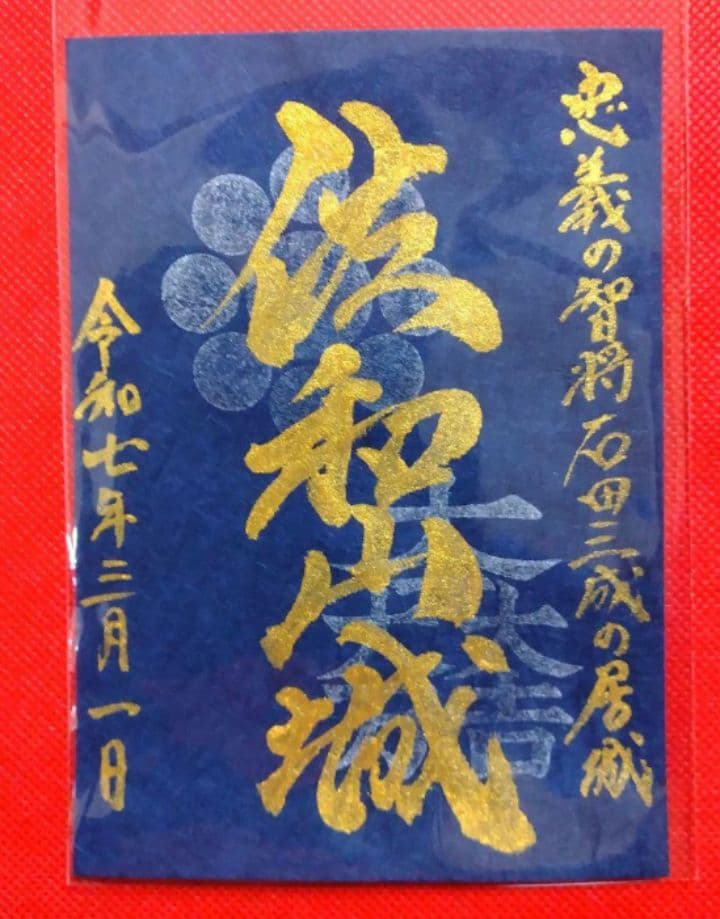 忠義の智将石田三成の居城
佐和山城
大一大万大吉
令和七年三月一日